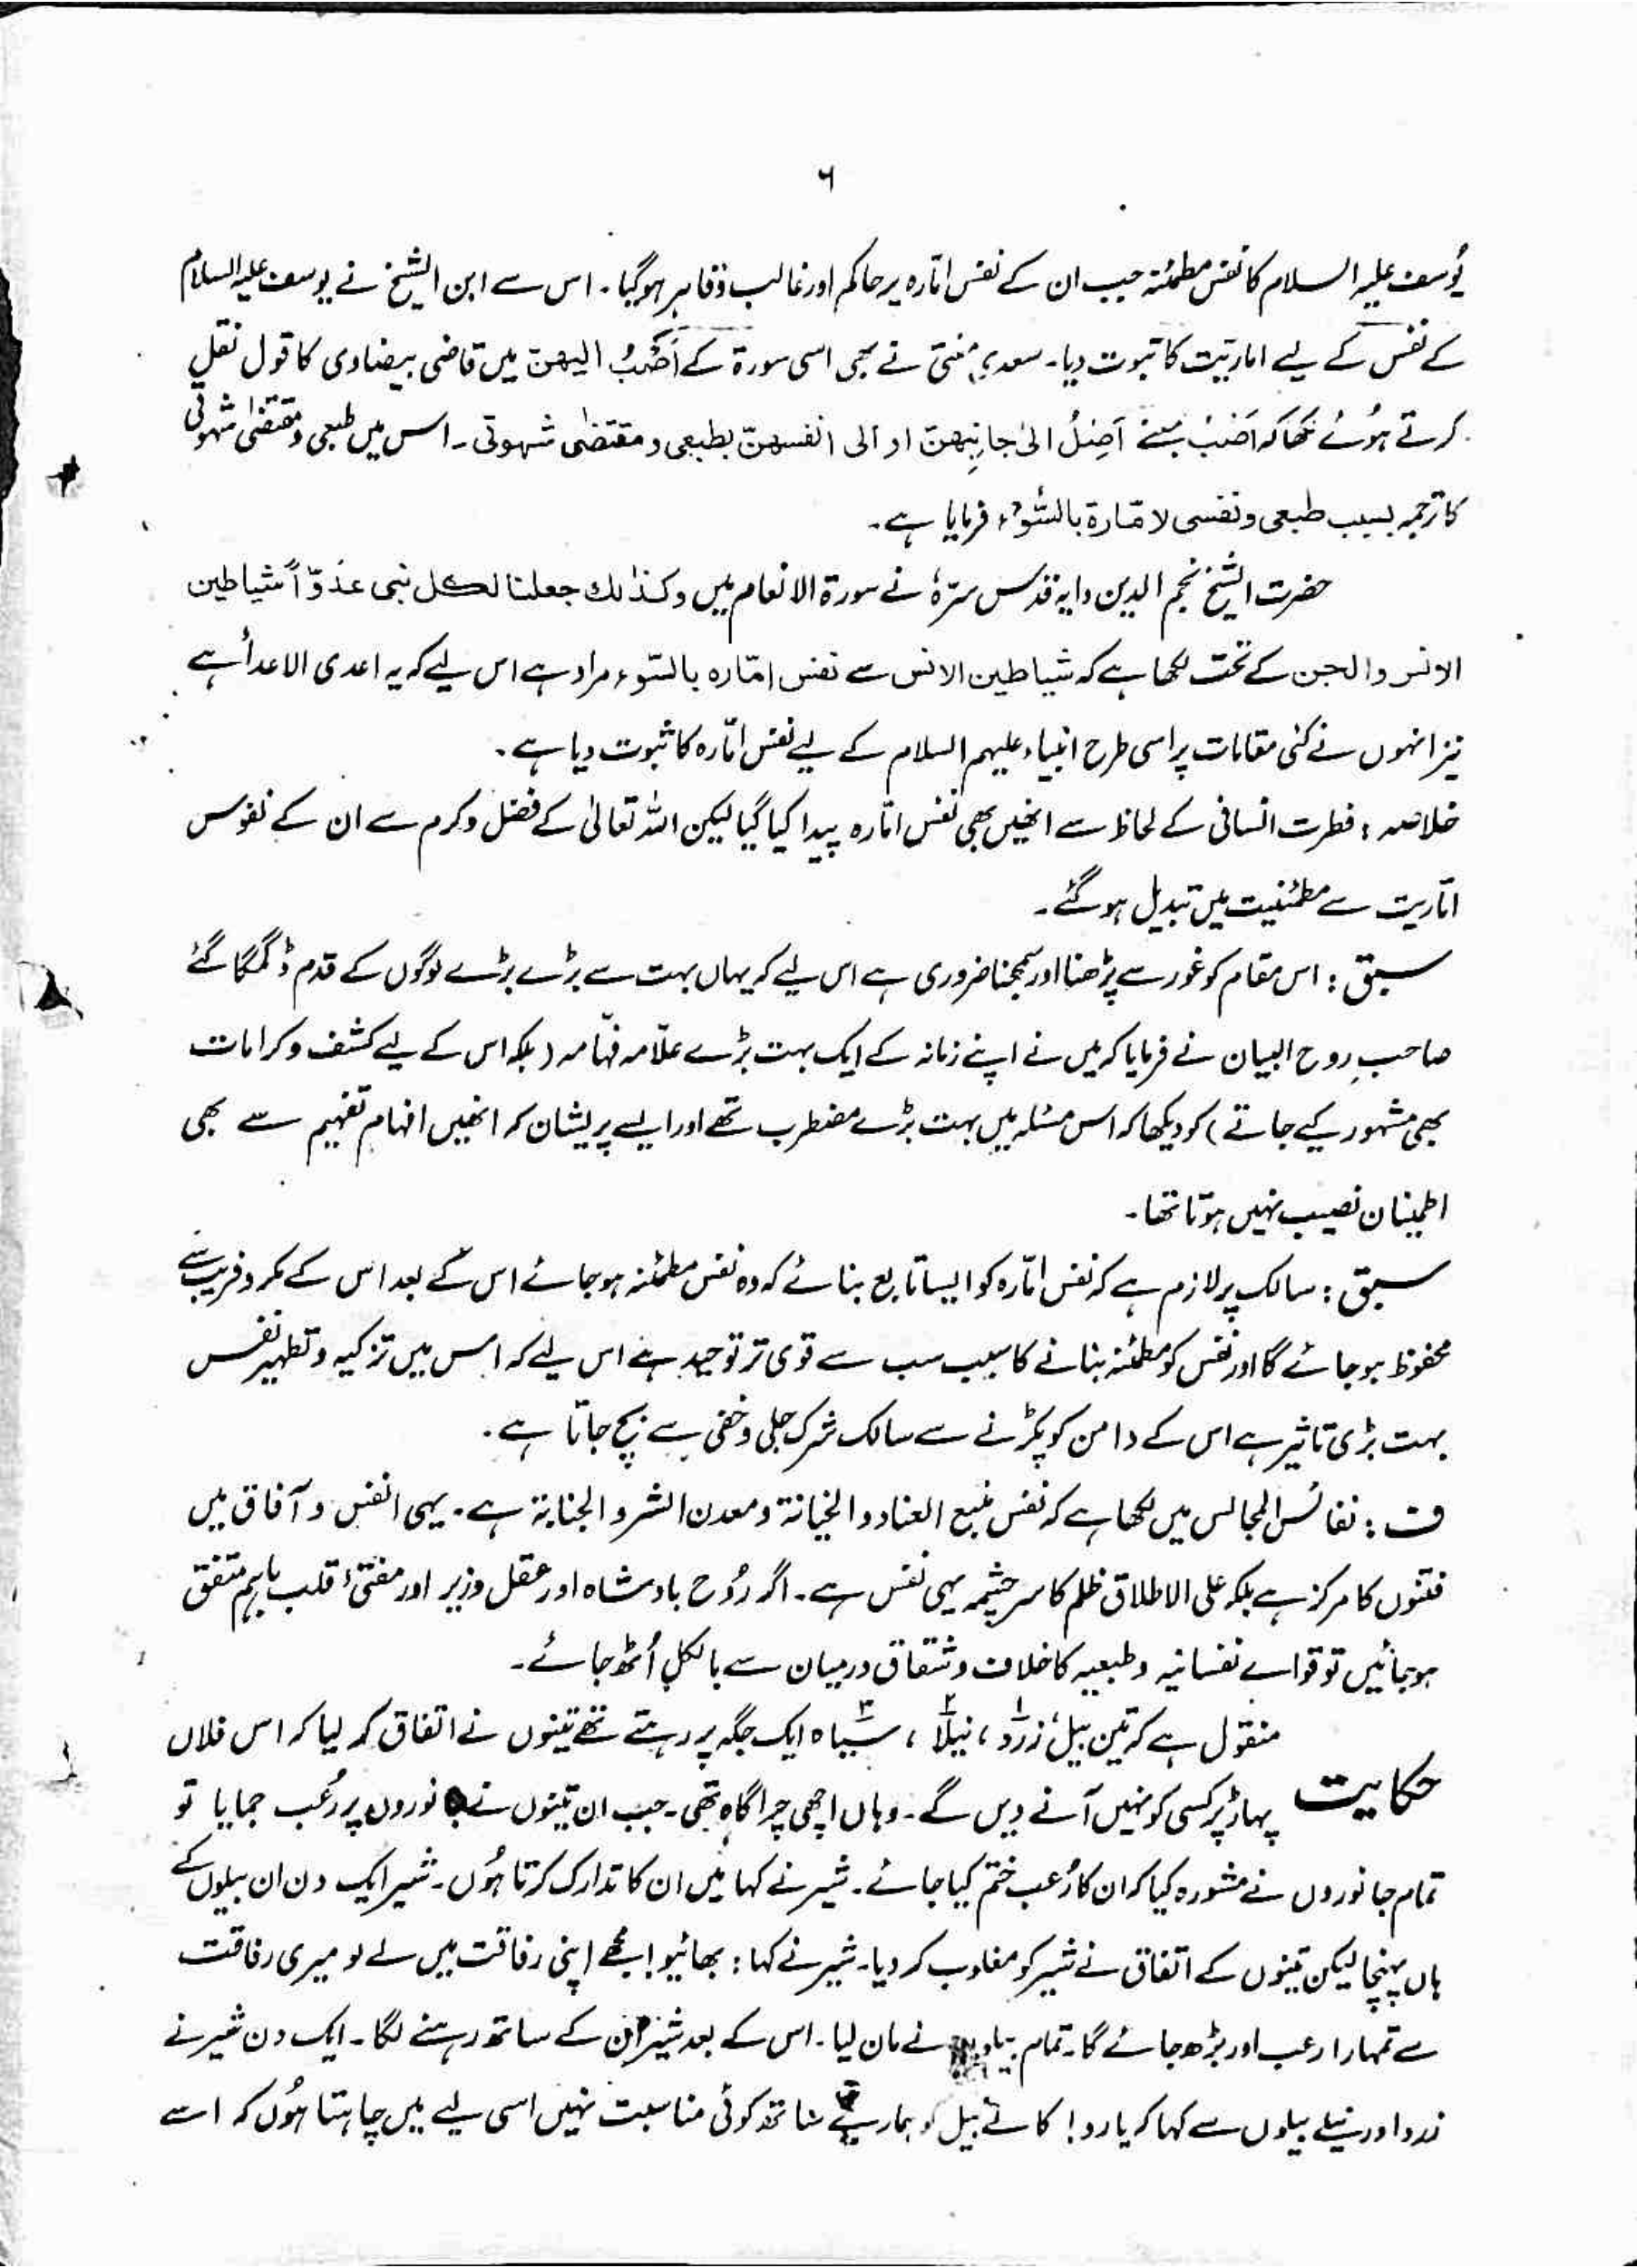 ۶
یُوسف علیہ السلام کا نفس مطمئنہ جب ان کے نفس امّارہ پر حاکم اور غالب و قاہر ہوگیا۔ اس سے ابن الشیخ نے یوسف علیہ السلام
کے نفس کے لیے اماریّت کا ثبوت دیا۔ سعدی مفتی نے بھی اسی سورۃ کے اَصْبُ الیھن میں قاضی بیضاوی کا قول نقل
کرتے ہُوئے لکھا کہ اَصْبُ بمعنے اَمِلُ الیٰ جانِبِھن او الی انفسھنّ بطبعی و مقتضٰی شہوتی۔ اس میں طبعی و مقتضٰی شہوتی
کا ترجمہ بسبب طبعی و نفسی لامّارۃ بالسُّوء فرمایا ہے۔
حضرت الشیخ نجم الدین دایہ قدس سرّہٗ نے سورۃ الانعام میں وکذالك جعلنا لکل نبی عدوّاً شیاطین
الانس والجن کے تحت لکھا ہے کہ شیاطین الانس سے نفس امّارہ بالسّوء مراد ہے اس لیے کہ یہ اعدی الاعدأ ہے
نیز انہوں نے کئی مقامات پر اسی طرح انبیاء علیہم السلام کے لیے نفس امّارہ کا ثبوت دیا ہے۔
خلاصہ : فطرت انسانی کے لحاظ سے انھیں بھی نفس امّارہ پیدا کیا گیا لیکن اللہ تعالیٰ کے فضل و کرم سے ان کے نفوس
امّاریت سے مطمئنیت میں تبدیل ہو گئے۔
سبق : اس مقام کو غور سے پڑھنا اور سمجھنا ضروری ہے اس لیے کہ یہاں بہت سے بڑے بڑے لوگوں کے قدم ڈگمگا گئے
صاحبِ روح البیان نے فرمایا کہ میں نے اپنے زمانہ کے ایک بہت بڑے علّامہ فہّامہ (بلکہ اس کے لیے کشف و کرامات
بھی مشہور کیے جاتے) کو دیکھا کہ اس مسئلہ میں بہت بڑے مضطرب تھے اور ایسے پریشان کہ انھیں افہام تفہیم سے بھی
اطمینان نصیب نہیں ہوتا تھا۔
سبق : سالک پر لازم ہے کہ نفس امّارہ کو ایسا تابع بنائے کہ وہ نفس مطمئنہ ہو جائے اس کے بعد اس کے مکر و فریب سے
محفوظ ہو جائے گا اور نفس کو مطمئنہ بنانے کا سبب سب سے قوی تر توحید ہے اس لیے کہ اس میں تزکیہ و تطہیر نفس
بہت بڑی تاثیر ہے اس کے دامن کو پکڑنے سے سالک شرک جلی و خفی سے بچ جاتا ہے۔
ف : نفائس المجالس میں لکھا ہے کہ نفس منبع العناد والخیانۃ و معدن الشر و الجنایۃ ہے۔ یہی انفس و آفاق میں
فتنوں کا مرکز ہے بلکہ علی الاطلاق ظلم کا سرچشمہ یہی نفس ہے۔ اگر رُوح بادشاہ اور عقل وزیر اور مفتیٔ قلب باہم متفق
ہو جائیں تو قوائے نفسانیہ و طبعیہ کا خلاف و شقاق درمیان سے بالکل اُٹھ جائے۔
منقول ہے کہ تین بیل ، زرد۱ ، نیلا۲ ، سیاہ۳ ایک جگہ پر رہتے تھے تینوں نے اتفاق کر لیا کہ اس فلاں
حکایت پہاڑ پر کسی کو نہیں آنے دیں گے۔ وہاں اچھی چراگاہ تھی۔ جب ان تینوں نے جانوروں پر رُعب جمایا تو
تمام جانوروں نے مشورہ کیا کہ ان کا رُعب ختم کیا جائے۔ شیر نے کہا میں ان کا تدارک کرتا ہُوں۔ شیر ایک دن ان بیلوں کے
ہاں پہنچا لیکن تینوں کے اتفاق نے شیر کو مغلوب کر دیا۔ شیر نے کہا : بھائیو! مجھے اپنی رفاقت میں لے لو میری رفاقت
سے تمہارا رعب اور بڑھ جائے گا۔ تمام نے مان لیا۔ اس کے بعد شیر ان کے ساتھ رہنے لگا۔ ایک دن شیر نے
زرد اور نیلے بیلوں سے کہا کہ یارو! کالے بیل کو ہمارے ساتھ کوئی مناسبت نہیں اسی لیے میں چاہتا ہُوں کہ اسے